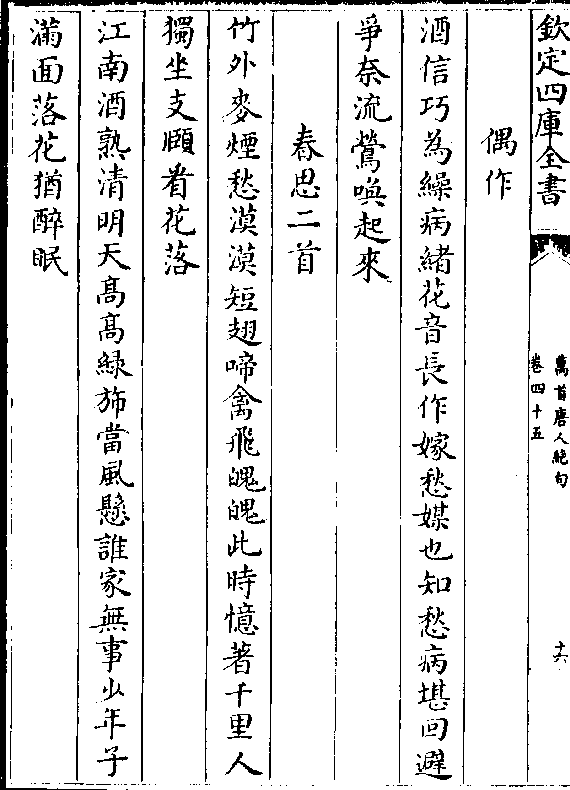 欽定四庫全書
萬首唐人絶句
卷四十五
十六
偶作
酒信巧為繰病緒花音長作嫁愁媒也知愁病堪回避
爭奈流鶯喚起來
春思二首
竹外麥煙愁漠漠短翅啼禽飛魄魄此時憶著千里人
獨坐支頤看花落
江南酒熟清明天高高綠斾當風懸誰家無事少年子
滿面落花猶醉眠